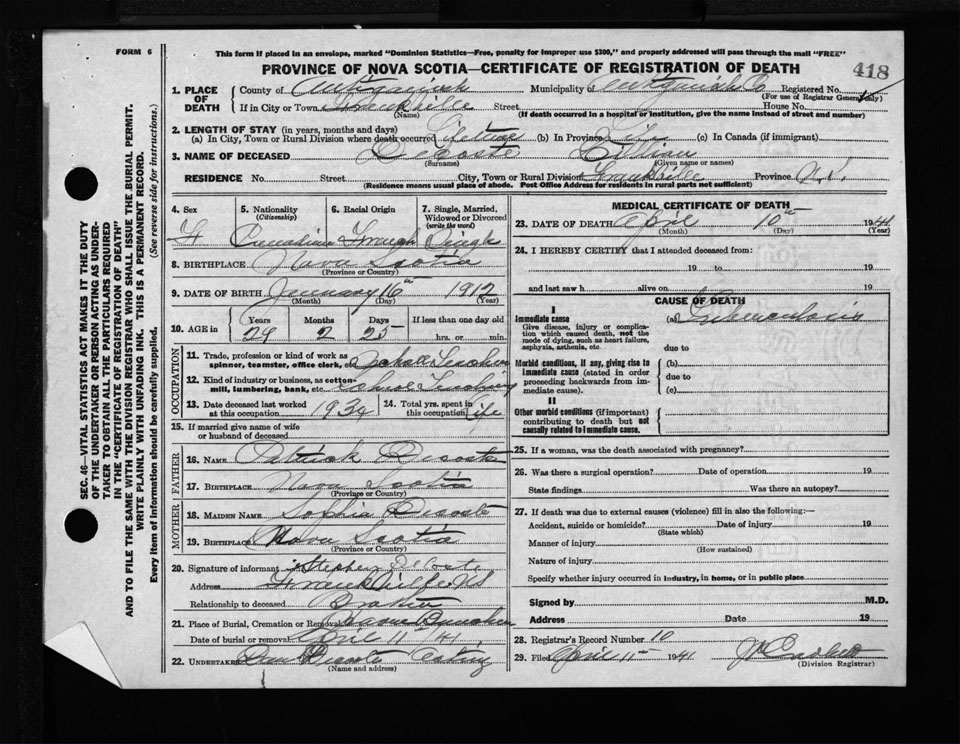 FORM 6
This form if placed in an envelope, marked "Dominion Statistics—Free, penalty for improper use $300," and properly addressed will pass through the mail "FREE"
PROVINCE OF NOVA SCOTIA—CERTIFICATE OF REGISTRATION OF DEATH
418
1. PLACE OF DEATH
County of Antigonish Municipality of Antigonish Co Registered No.
(For use of Registrar General only)
If in City or Town Frankville Street House No.
(Name) (If death occurred in a hospital or institution, give the name instead of street and number)
2. LENGTH OF STAY (in years, months and days)
(a) In City, Town or Rural Division where death occurred Lifetime (b) In Province Life (c) In Canada (if immigrant)
3. NAME OF DECEASED Decoste Lillian
(Surname) (Given name or names)
RESIDENCE No. Street City, Town or Rural Division Frankville Province N.S.
(Residence means usual place of abode. Post Office Address for residents in rural parts not sufficient)
4. Sex 5. Nationality 6. Racial Origin 7. Single, Married, Widowed or Divorced
(Citizenship) (write the word)
F Canadian French Single
8. BIRTHPLACE Nova Scotia
(Province or Country)
9. DATE OF BIRTH January 16th 1912
(Month) (Day) (Year)
10. AGE in Years Months Days If less than one day old
29 2 25 hrs. or min.
OCCUPATION
11. Trade, profession or kind of work as spinner, teamster, office clerk, etc. School Teacher
12. Kind of industry or business, as cotton-mill, lumbering, bank, etc. School Teaching
13. Date deceased last worked at this occupation 1934 14. Total yrs. spent in this occupation Life
15. If married give name of wife or husband of deceased
FATHER
16. NAME Patrick Decoste
17. BIRTHPLACE Nova Scotia
(Province or Country)
MOTHER
18. MAIDEN NAME Sophia Decoste
19. BIRTHPLACE Nova Scotia
(Province or Country)
20. Signature of informant Stephen Decoste
Address Frankville NS
Relationship to deceased Brother
21. Place of Burial, Cremation or Removal
Date of burial or removal April 11th 41
22. UNDERTAKER Decoste
(Name and address)
MEDICAL CERTIFICATE OF DEATH
23. DATE OF DEATH April 10th 1941
(Month) (Day) (Year)
24. I HEREBY CERTIFY that I attended deceased from:
19 to 19
and last saw h alive on 19
CAUSE OF DEATH
I
Immediate cause (a) Tuberculosis
Give disease, injury or complication which caused death, not the mode of dying, such as heart failure, asphyxia, asthenia, etc.
due to
Morbid conditions, if any, giving rise to immediate cause (stated in order proceeding backwards from immediate cause).
(b)
due to
(c)
II
Other morbid conditions (if important) contributing to death but not causally related to immediate cause.
25. If a woman, was the death associated with pregnancy?
26. Was there a surgical operation? Date of operation 19
State findings Was there an autopsy?
27. If death was due to external causes (violence) fill in also the following:—
Accident, suicide or homicide? Date of injury 19
(State which)
Manner of injury
(How sustained)
Nature of injury
Specify whether injury occurred in industry, in home, or in public place
Signed by M.D.
Address Date 19
28. Registrar's Record Number 10
29. Filed April 11th 1941
(Division Registrar)
SEC. 46—VITAL STATISTICS ACT MAKES IT THE DUTY OF THE UNDERTAKER OR PERSON ACTING AS UNDERTAKER TO OBTAIN ALL THE PARTICULARS REQUIRED IN THE "CERTIFICATE OF REGISTRATION OF DEATH"
AND TO FILE THE SAME WITH THE DIVISION REGISTRAR WHO SHALL ISSUE THE BURIAL PERMIT.
WRITE PLAINLY WITH UNFADING INK. THIS IS A PERMANENT RECORD.
Every item of information should be carefully supplied. (See reverse side for instructions.)